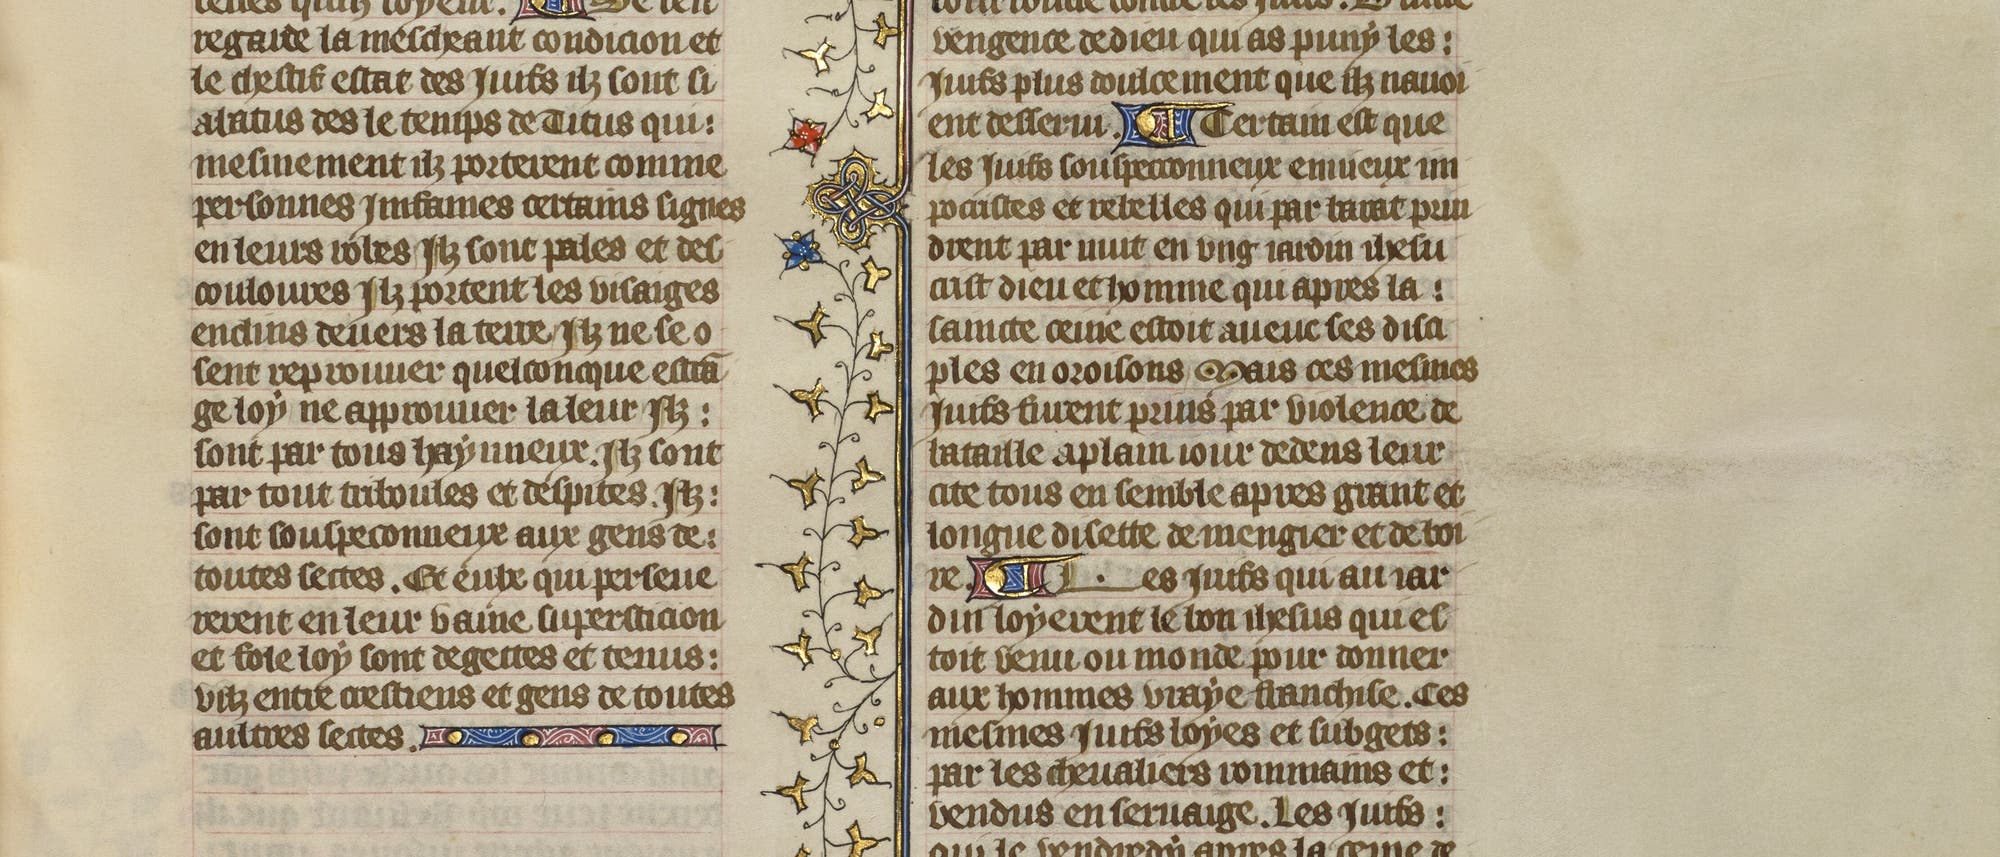 regarde la mescheant condicion et
le chestif estat des Juifs ilz sont si
alatus des le temps de Titus qui:
mesmement ilz porterent comme
personnes Jnfames certains signes
en leurs robes Jlz sont pales et des
coulourez Jlz portent les visaiges
enclins deuers la terre Jlz ne se o
sent reprouuer quelconcque estrã
ge loy ne approuuer la leur Jlz:
sont par tous haynneux. Jlz sont
par tout triboules et despites. Jlz:
sont souspeconneux aux gens de:
toutes sectes. Et eulx qui perseue
rerent en leur vaine supersticion
et fole loy sont degettes et tenus:
vilz entre crestiens et gens de toutes
aultres sectes.
vengence de dieu qui as puny les:
Juifs plus doulcement que ilz nauoi
ent desserui. Certain est que
les Juifs souspeconneux enuieux im
pocrites et rebelles qui par barat prin
drent par nuit en vng iardin ihesu
crist dieu et homme qui apres la:
saincte cene estoit aueuc ses disci
ples en oroisons Mais ces mesmes
Juifs furent prins par violence de
bataille a plain iour dedens leur
cite tous en semble apres grant et
longue disette de mengier et de boi
re. Les Juifs qui au iar
din loyerent le bon ihesus qui es
toit venu ou monde pour donner
aux hommes vraye franchise. Ces
mesmes Juifs loyes et subgets:
par les cheualiers rommains et:
vendus en seruaige. Les Juifs:
qui le vendredy apres la cene de